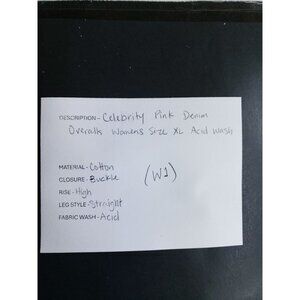 DESCRIPTION - Celebrity Pink Denim
Overalls Womens Size XL Acid Wash
MATERIAL - Cotton
CLOSURE - Buckle
RISE - High
LEG STYLE - Straight
FABRIC WASH - Acid
(W1)